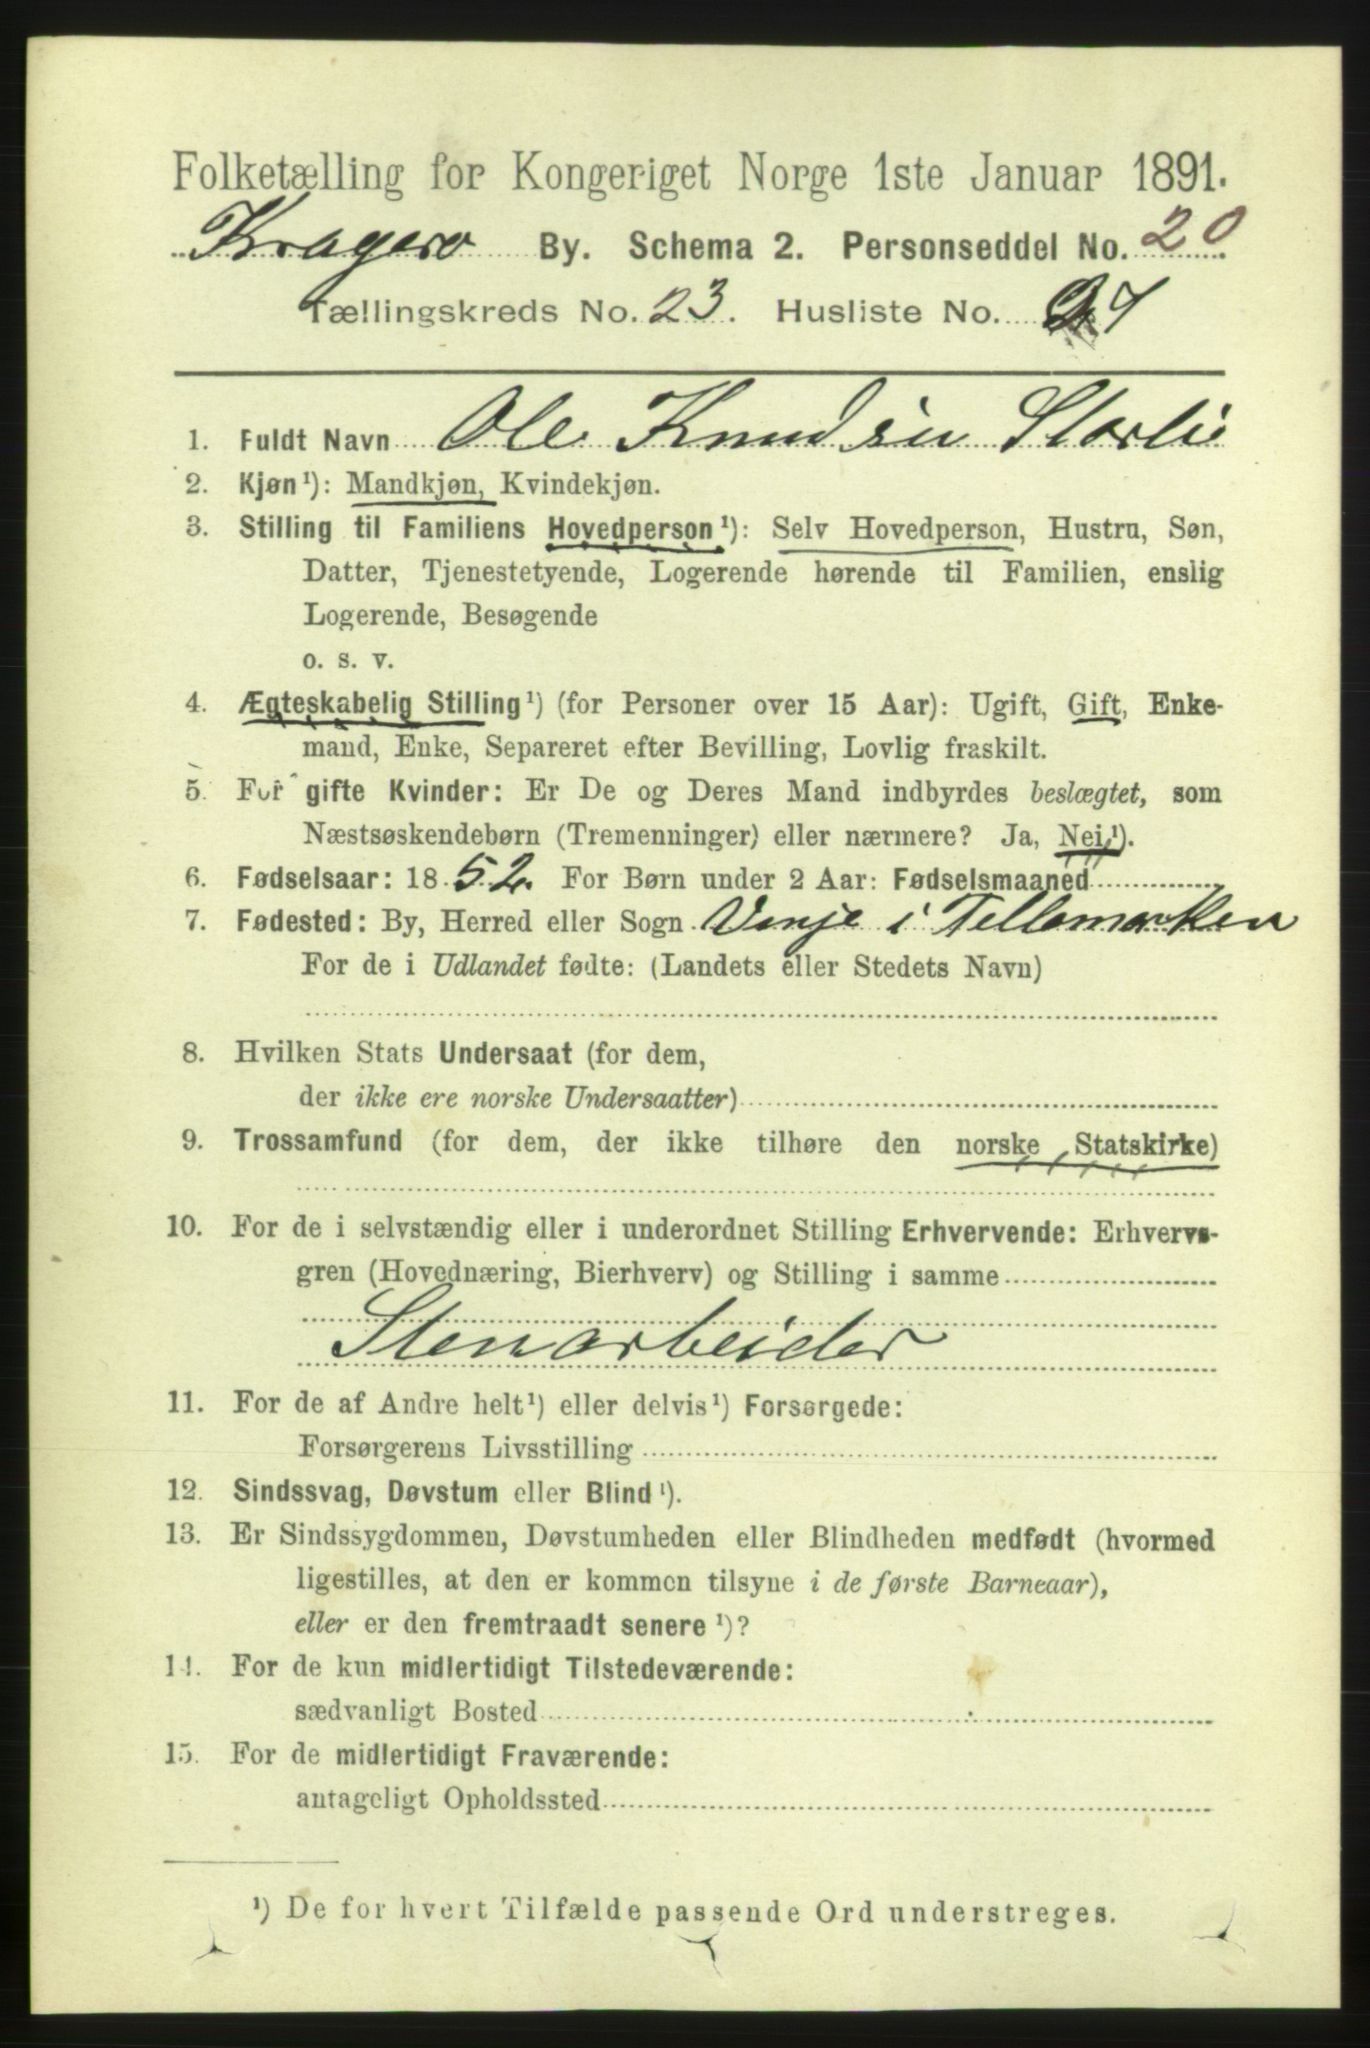 Folketælling for Kongeriget Norge 1ste Januar 1891.
Kragerø By. Schema 2. Personseddel No. 20
Tællingskreds No. 23. Husliste No. 24
1. Fuldt Navn Ole Knudsen Storlie
2. Kjøn¹): Mandkjøn, Kvindekjøn.
3. Stilling til Familiens Hovedperson¹): Selv Hovedperson, Hustru, Søn,
Datter, Tjenestetyende, Logerende hørende til Familien, enslig
Logerende, Besøgende
o. s. v.
4. Ægteskabelig Stilling¹) (for Personer over 15 Aar): Ugift, Gift, Enke-
mand, Enke, Separeret efter Bevilling, Lovlig fraskilt.
5. For gifte Kvinder: Er De og Deres Mand indbyrdes beslægtet, som
Næstsøskendebørn (Tremenninger) eller nærmere? Ja, Nei¹).
6. Fødselsaar: 1852. For Børn under 2 Aar: Fødselsmaaned
7. Fødested: By, Herred eller Sogn Vinje i Tellemarken
For de i Udlandet fødte: (Landets eller Stedets Navn)
8. Hvilken Stats Undersaat (for dem,
der ikke ere norske Undersaatter)
9. Trossamfund (for dem, der ikke tilhøre den norske Statskirke)
10. For de i selvstændig eller i underordnet Stilling Erhvervende: Erhvervs-
gren (Hovednæring, Bierhverv) og Stilling i samme
Stenarbeider
11. For de af Andre helt¹) eller delvis¹) Forsørgede:
Forsørgerens Livsstilling
12. Sindssvag, Døvstum eller Blind¹).
13. Er Sindssygdommen, Døvstumheden eller Blindheden medfødt (hvormed
ligestilles, at den er kommen tilsyne i de første Barneaar),
eller er den fremtraadt senere¹)?
14. For de kun midlertidigt Tilstedeværende:
sædvanligt Bosted
15. For de midlertidigt Fraværende:
antageligt Opholdssted
¹) De for hvert Tilfælde passende Ord understreges.